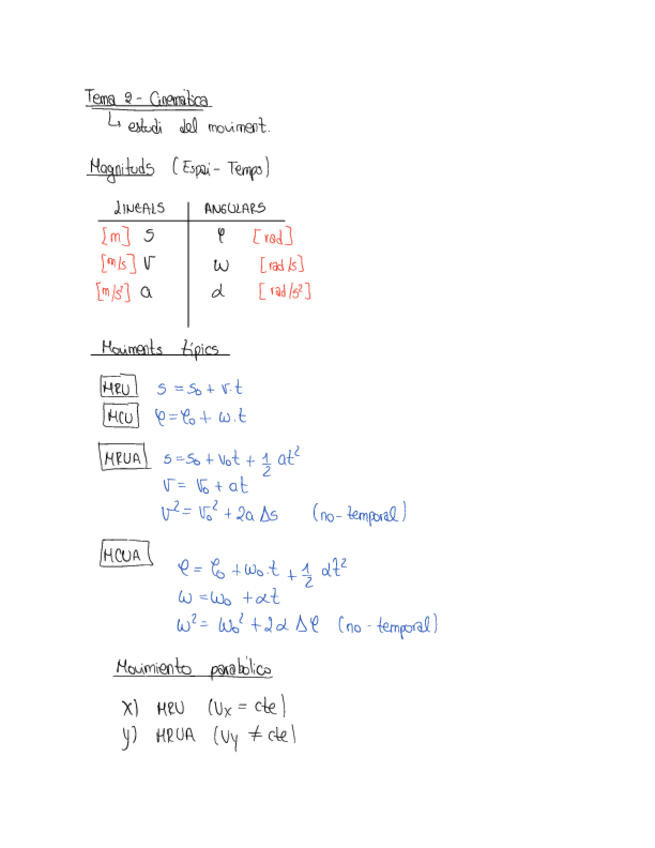 Tema 2 - Cinemàtica
↳ estudi del moviment.
Magnituds (Espai - Temps)
LINEALS ANGULARS
[m] s φ [rad]
[m/s] v ω [rad/s]
[m/s²] a α [rad/s²]
Moviments típics
MRU s = s₀ + v·t
MCU φ = φ₀ + ω·t
MRUA s = s₀ + v₀t + 1/2 at²
v = v₀ + at
v² = v₀² + 2a Δs (no-temporal)
MCUA
φ = φ₀ + ω₀·t + 1/2 αt²
ω = ω₀ + αt
ω² = ω₀² + 2α Δφ (no-temporal)
Movimiento parabólico
x) MRU (Vx = cte)
y) MRUA (Vy ≠ cte)